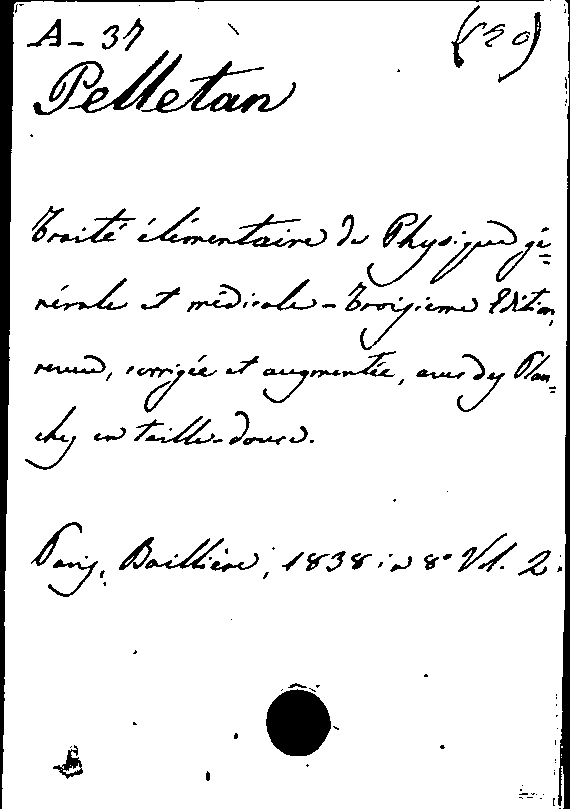 A - 37
Pelletan
Traité élémentaire de Physique gé=
nérale et médicale - Troisieme Edition,
revue, corrigée et augmentée, avec des Plan=
ches en taille-douce.
Paris, Baillière, 1838 in 8° Vol. 2.